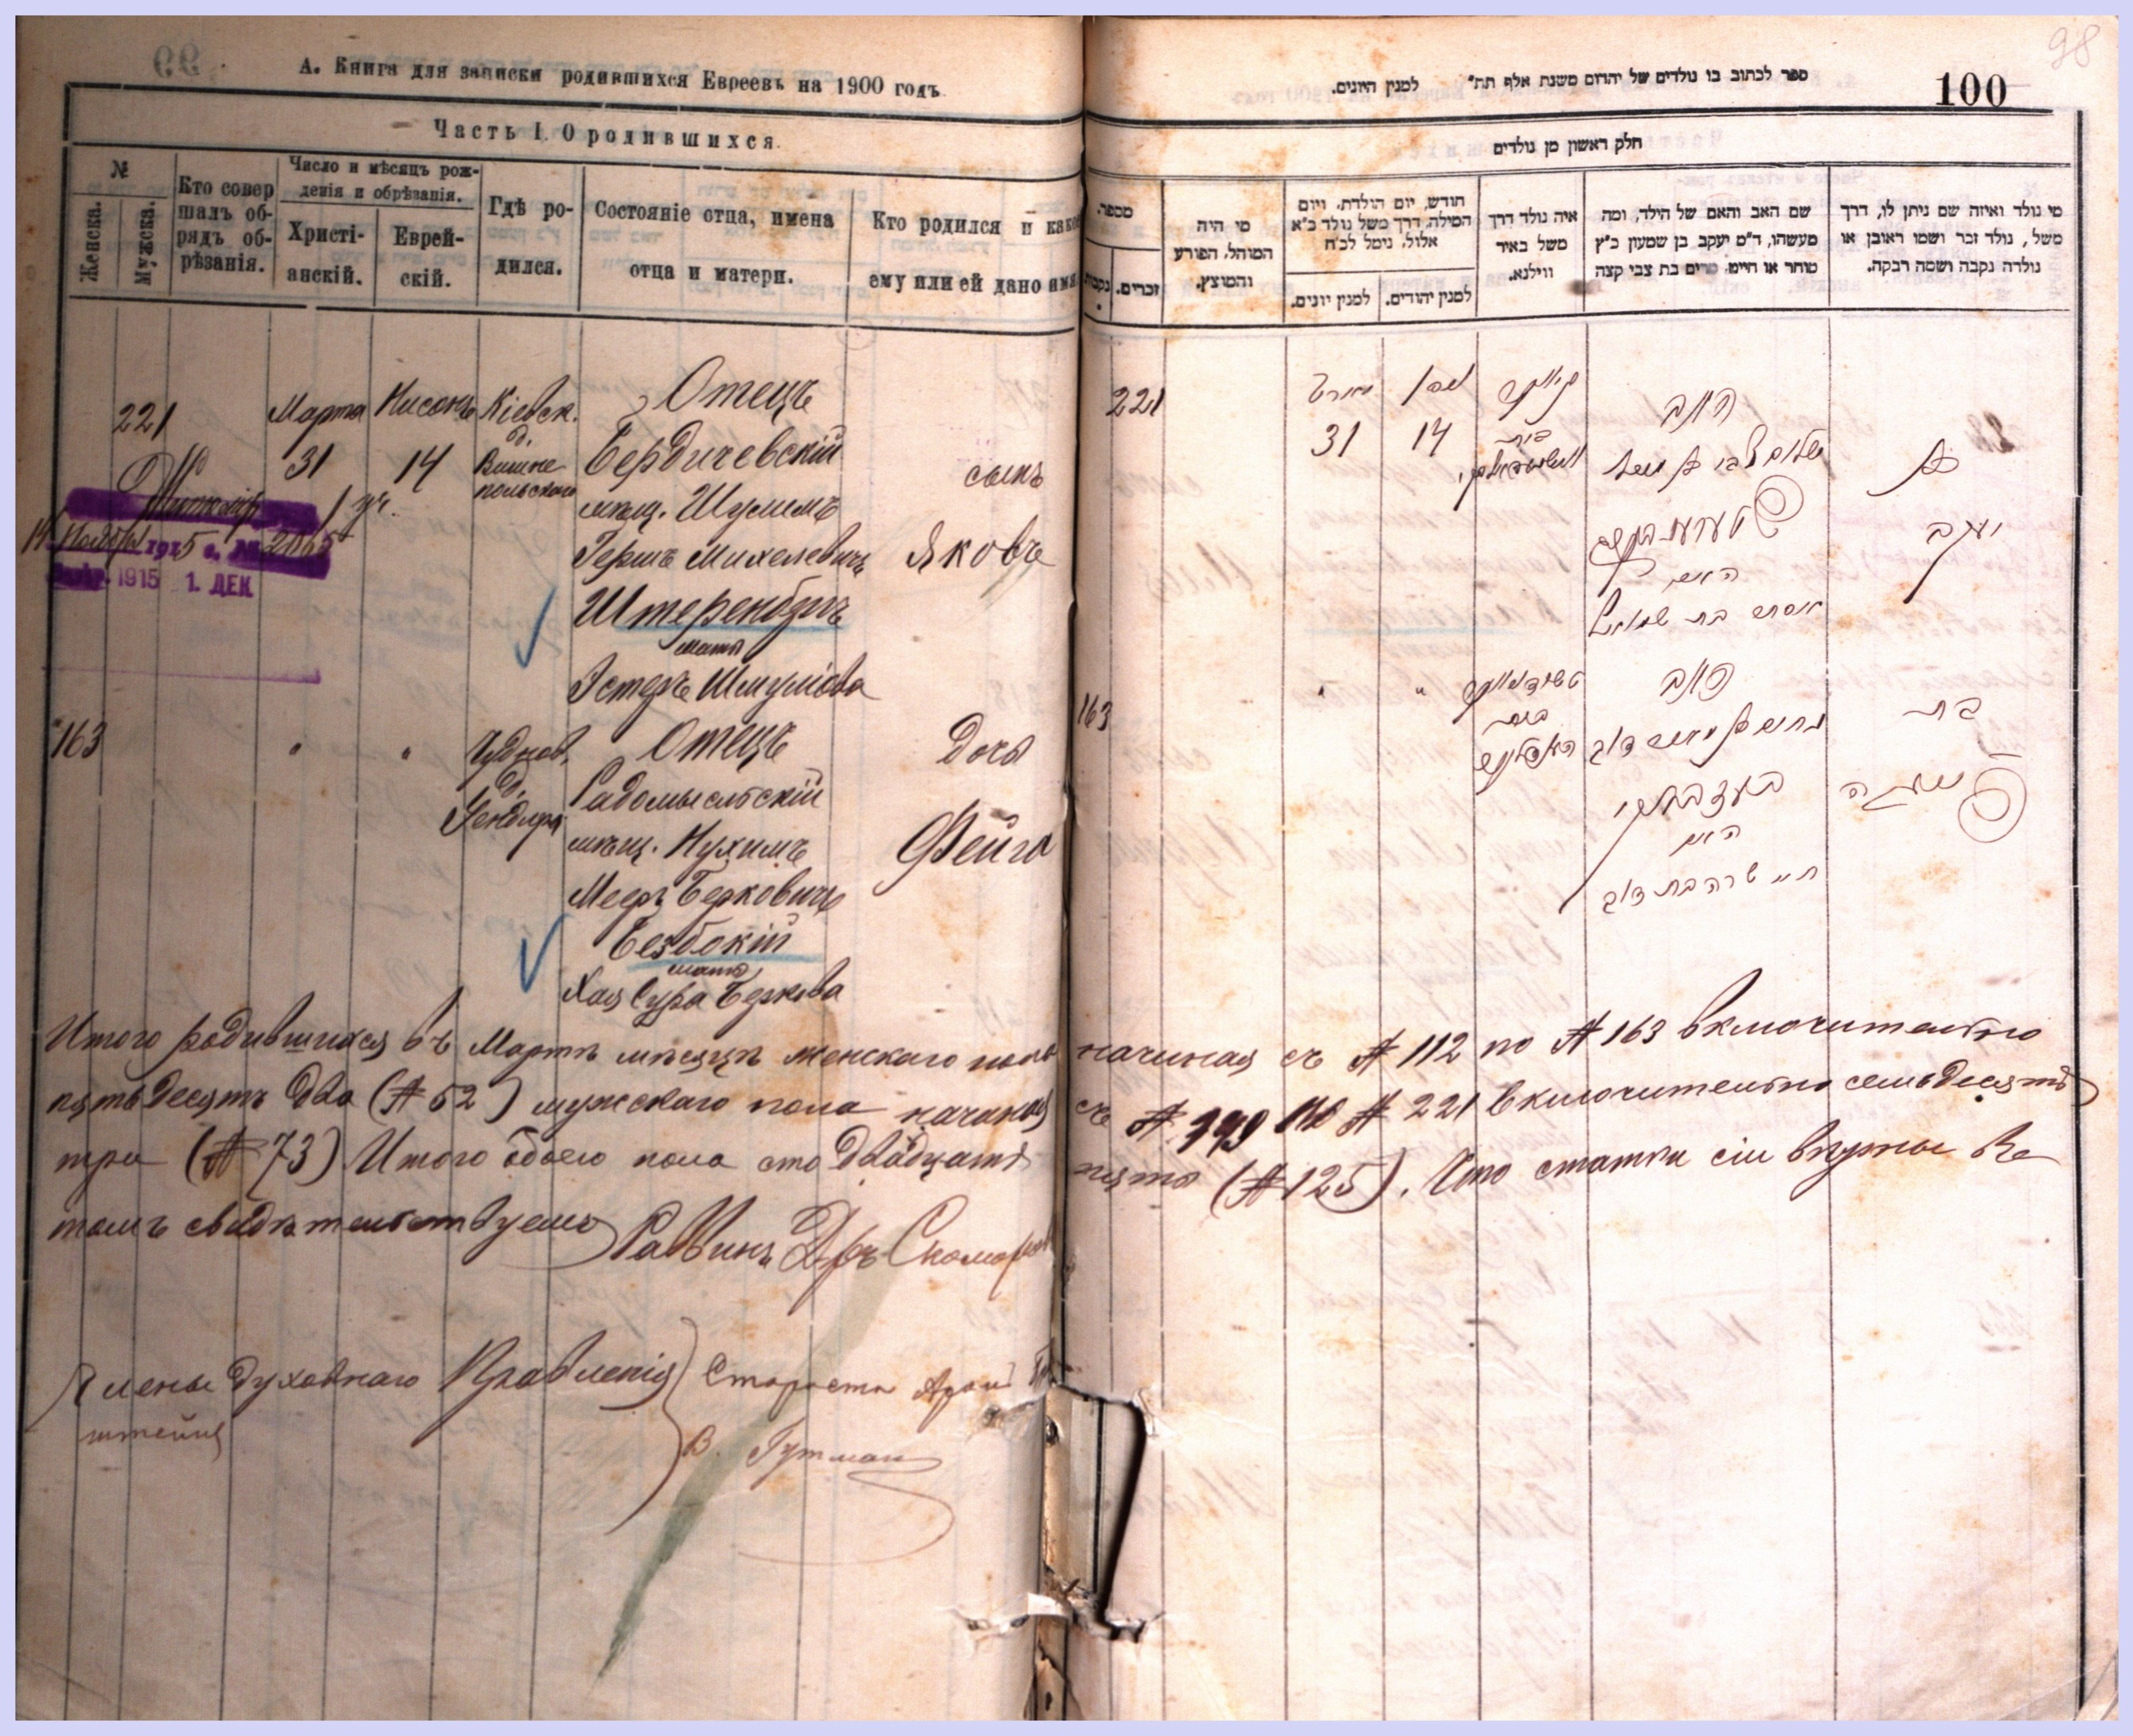 А. Книга для записки родившихся Евреевъ на 1900 годъ
Часть I. О родившихся.
№
Женска.
Мужска.
Кто совершалъ обрядъ обрѣзанія.
Число и мѣсяцъ рожденія и обрѣзанія.
Христіанскій.
Еврейскій.
Гдѣ родился.
Состояніе отца, имена отца и матери.
Кто родился и какое ему или ей дано имя
221
Марта
31
Нисонъ
14
Кіевск.
д.
Вишне
польскаго
Отецъ
Бердичевскій
мѣщ. Шулимъ
Гершъ Михелевичъ
Штеренбогъ
мать
Эстеръ Шмулiова
сынъ
Яковъ
1915 1. ДЕК
163
"
"
Чуднов.
д.
Отецъ
Радомысльскій
мѣщ. Нухимъ
Мееръ Берковичъ
Безбокій
мать
Хая Сура Беркова
Дочь
Фейга
98
100
ספר לכתוב בו נולדים של יהדום משנת אלף תת״ למנין היונים.
חלק ראשון מן נולדים
מספר.
נקבות
זכרים.
מי היה
המוהל, הפורע
והמוצץ.
חודש, יום הולדת, ויום
המילה, דרך משל נולד כ״א
אלול, נימל לכ״ח
למנין יונים.
למנין יהודים.
איה נולד דרך
משל באיר
ווילנא.
שם האב והאם של הילד, ומה
מעשהו, ד״מ יעקב בן שמעון כ״ץ
סוחר או חיים, מרים בת צבי קצה
מי נולד ואיזה שם ניתן לו, דרך
משל, נולד זכר ושמו ראובן או
נולדה נקבה ושמה רבקה.
221
31
14
האב
האם
אסתר בת שמואל
בן
יעקב
163
"
"
האב
האם
חי׳ שרה בת דוב
בת
פייגא
Итого родившихся въ Мартѣ мѣсяцѣ женскаго пола начиная съ № 112 по № 163 включительно
пятьдесятъ два (№ 52) мужскаго пола начиная съ № 149 по № 221 включительно семьдесятъ
три (№ 73) Итого обоего пола сто двадцать пять (№ 125). Что статьи сіи вѣрны въ
томъ свидѣтельствуемъ Раввинъ Д-ръ
Члены Духовнаго Правленія
Староста
штейнъ
В. Гутман